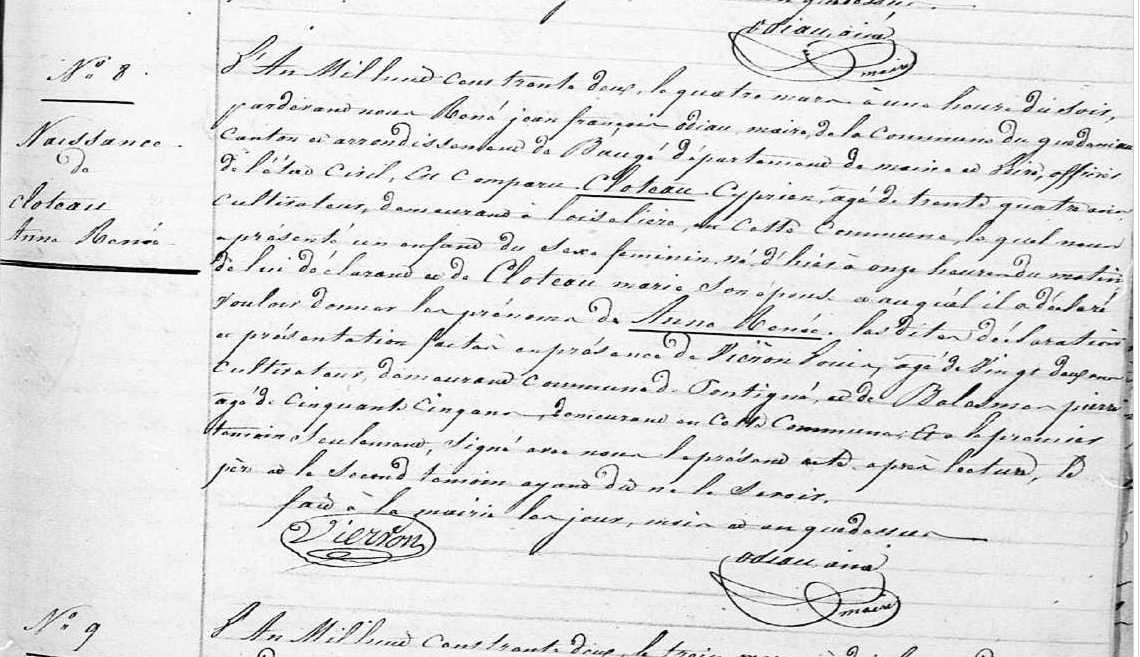 odiau ainé
maire
No 8.
Naissance
de
Cloteau
Anne Renée
L'An Mil huit cens trente deux, le quatre mars à une heure du soir,
pardevant nous René jean françois odiau, maire, de la Commune du guedeniau
canton et arrondissement de Baugé département de maine et Loire, officier
de l'état Civil, Est Comparu Cloteau Cyprien, âgé de trente quatre ans
cultivateur, demeurant à loiseliere, en Cette Commune, le quel nous
a présenté un enfant du sexe feminin, né d'hier à onze heures du matin
de lui déclarant et de Cloteau marie son épouse et auquel il a déclaré
vouloir donner les prénoms de Anne Renée. les dites déclaration
et présentation faites en présence de Vieron Louis, âgé de vingt deux ans
cultivateur, demeurant commune de Pontigné, et de Balesmes pierre
agé de Cinquante Cinq ans, demeurant en Cette Commune, Et a le premier
temoin seulement, signé avec nous le présent acte après lecture, le
père et le second temoin ayant dit ne le savoir.
fait à la mairie les jour, mois et an que dessus
Vierron
odiau ainé
maire
No 9
L'An Mil huit cens trente deux, le trois mars à